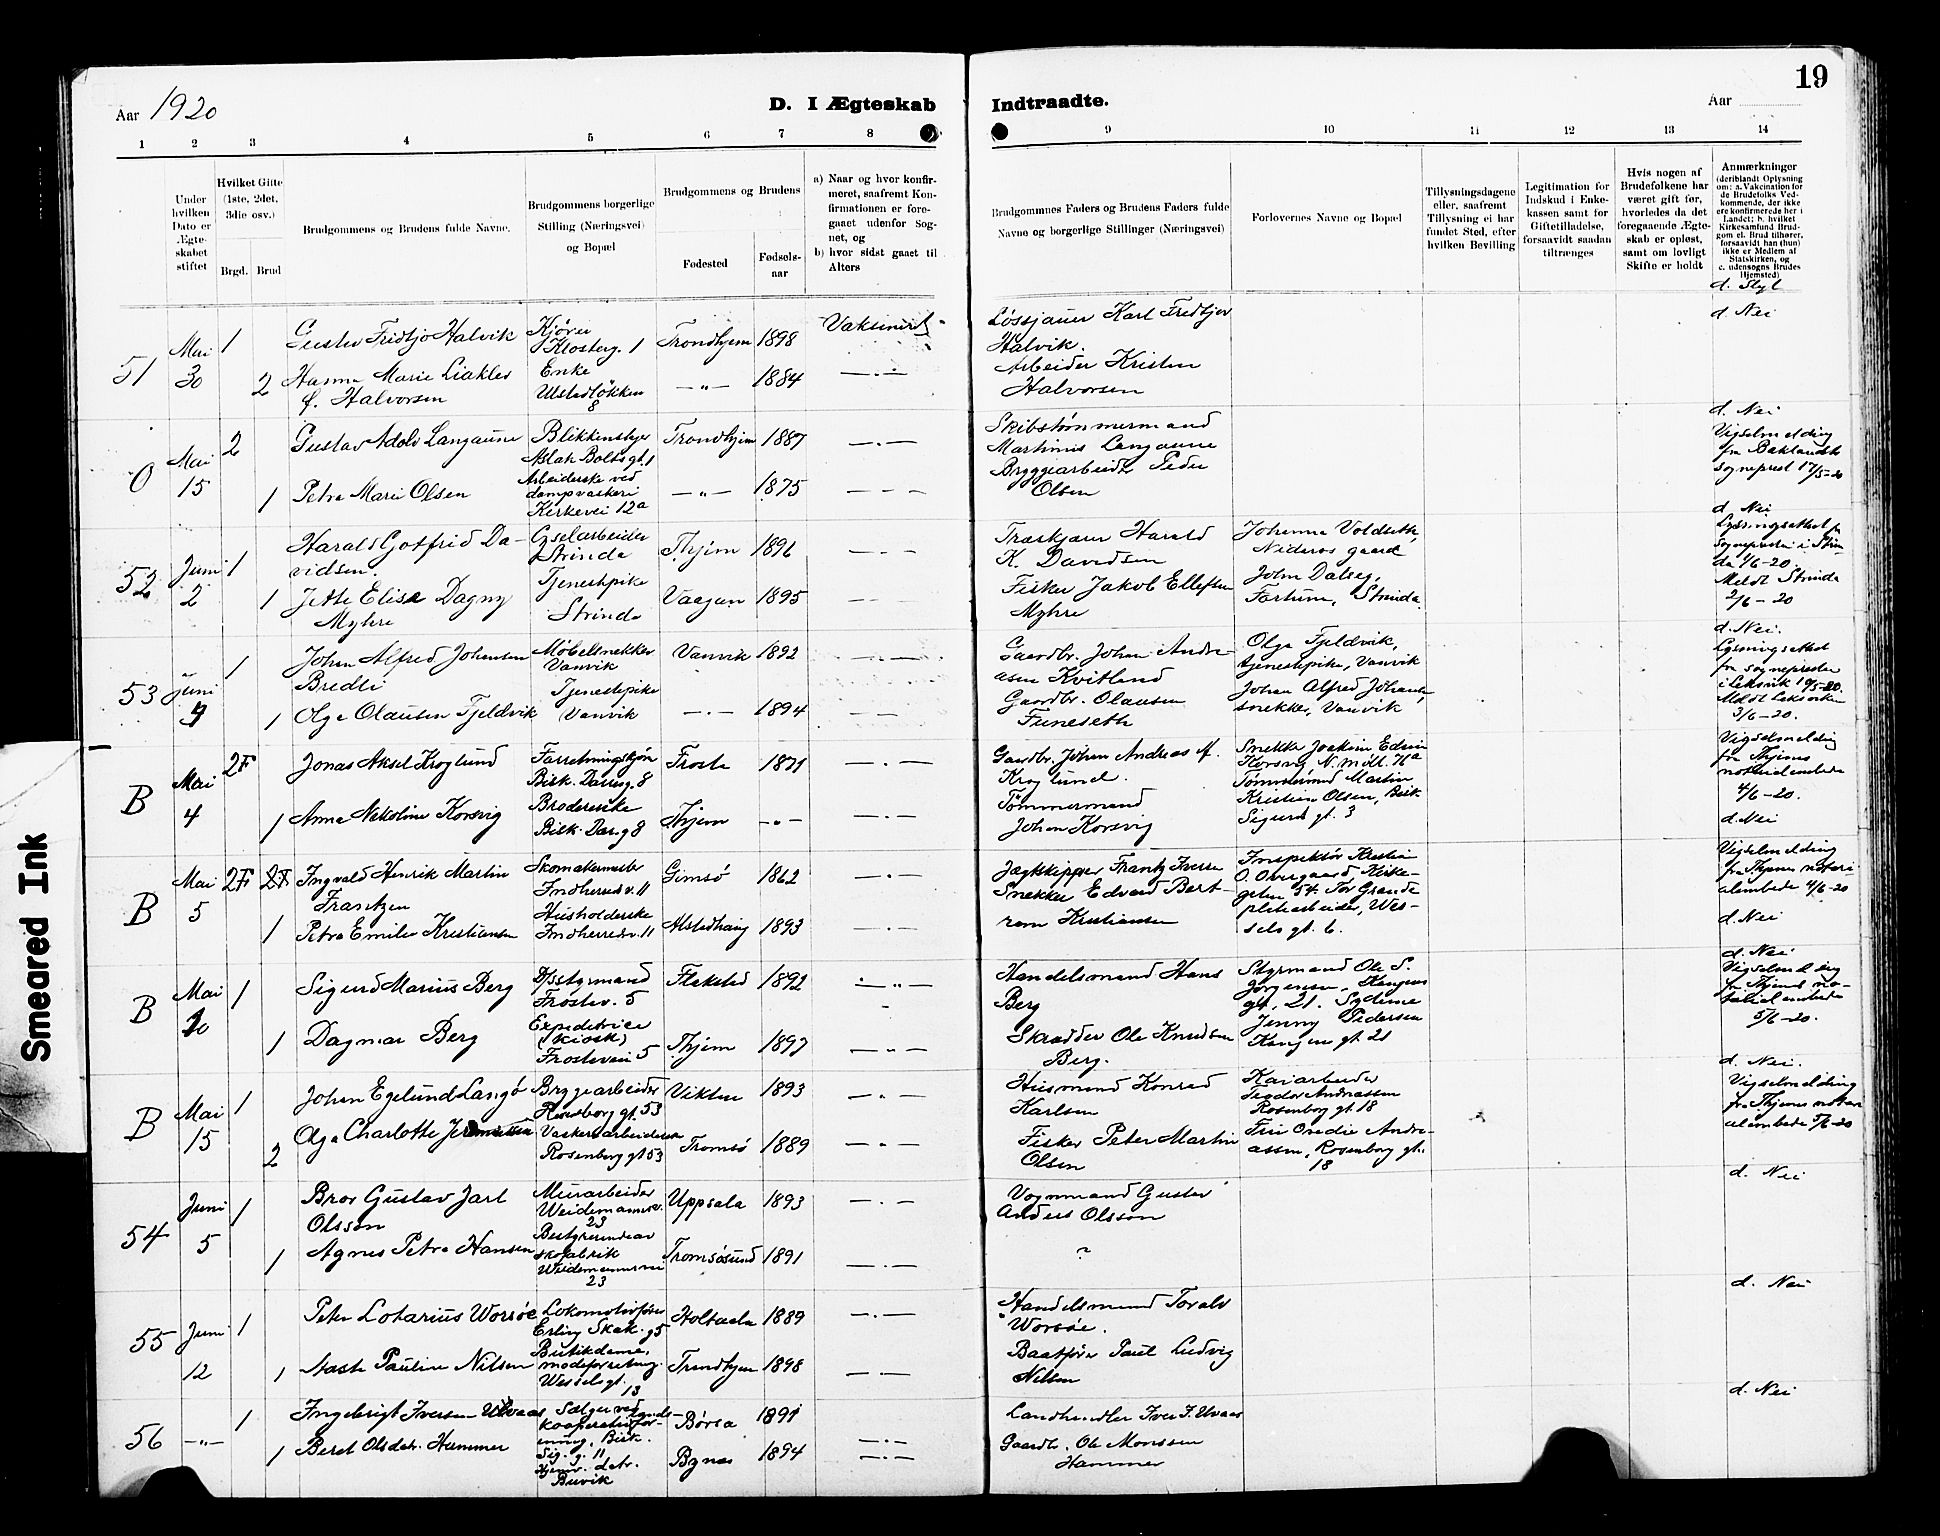 19
Aar 1920
D. I Ægteskab
Indtraadte.
Aar
1 2 3 4 5 6 7 8 9 10 11 12 13 14
Under hvilken Dato er Ægte-skabet stiftet
Hvilket Gifte (1ste, 2det, 3die osv.)
Brgd. Brud
Brudgommens og Brudens fulde Navne.
Brudgommens borgerlige Stilling (Næringsvei) og Bopæl
Brudgommens og Brudens
Fødested
Fødsels-aar
a) Naar og hvor konfir-meret, saafremt Kon-firmationen er fore-gaaet udenfor Sog-net, og
b) hvor sidst gaaet til Alters
Brudgommes Faders og Brudens Faders fulde Navne og borgerlige Stillinger (Næringsvei)
Forlovernes Navne og Bopæl
Tillysningsdagene eller, saafremt Tillysning ei har fundet Sted, efter hvilken Bevilling
Legitimation for Indskud i Enke-kassen samt for Giftetilladelse, forsaavidt saadan tiltrænges
Hvis nogen af Brudefolkene har været gift før, hvorledes da det foregaaende Ægte-skab er opløst, samt om lovligt Skifte er holdt
Anmærkninger (deriblandt Oplysning om: a. Vakcination for de Brudefolks Ved-kommende, der ikke ere konfirmerede her i Landet; b. hvilket Kirkesamfund Brud-gom el. Brud tilhører, forsaavidt han (hun) ikke er Medlem af Statskirken, og c. udensogns Brudes Hjemsted)
d. Slegt
51
Mai 30
1
Gustav Fridtjo Halvik
Kjører
Klosterg. 1
Trondhjem 1898
Vaksinert
Karl Fredtjov
Halvik.
d. Nei
2
Hanna Marie Liakles
f. Halvorsen
Enke
Ulstadløkken
8
— " — 1884
Arbeider Kristen
Halvorsen
0
Mai 15
2
Gustav Adolv Langaune
Blikkenslager
Aslak Boltsgt. 1
Trondhjem 1887
Skibstømmermand
Martinus Langaune
d. Nei
Vigselmelding
fra Baklandets
sogneprest 17/5-20
1
Petra Marie Olsen
Arbeiderske ved
dampvaskeri
Kirkevei 12a
— " — 1875
Bryggearbeider Peder
Olsen
52
Juni 2
1
Harald Gotfrid Da-
vidsen.
Strinda
Thjem 1896
Harald
K. Davidsen
Johanna Voldseth
Nidaros gaard
d. Nei
Lysningsattest fr
sognepresten i Strin-
da 1/6-20.
Meldt Strinda
2/6-20
1
Jette Elise Dagny
Myhre
Tjenestpike
Strinda
Vaagan 1895
Fisker Jakob Ellefsen
Myhre
John Dalseg,
Fortuna, Strinda.
53
Juni
1
Johan Alfred Johansen
Bredli
Møbelsnekker
Vanvik
Vanvik 1892
Gaardbr. Johan Andre-
asen Kvitland
Olga Fjeldvik,
tjenestepike, Vanvik
d. Nei.
Lysningsattest
fra sognepresten
i Leksvik
Meldt Leksviken
3/6-20.
1
Olga Olausen Fjeldvik
Tjenestepike
Vanvik
— " — 1894
Gaardbr. Olausen
Funeseth
Johan Alfred Johansen,
snekker, Vanvik
B
Mai 4
2F
Jonas Aksel Kroglund
Bisk. Darreg. 8
Frosta 1871
Gaardbr. Johan Andreas A.
Kroglund.
Snekker Joakim Edvin
Korsvig, N. møll. 71a
Vigselmelding
fra Thjems
notarialembede
4/6-20.
d. Nei
1
Anna Nikoline Korsvig
Broderiske
Bisk. Darreg 8
Thjem — " —
Tømmermand
Johan Korsvig
Tømmermand Martin
Kristian Olsen, Bisk
Sigurds gt. 3
B
Mai 5
2F 2F
Ingvald Henrik Martin
Frantzen
Skomakermester
Indherredsv. 11
Gimsø 1862
Frantz Iversen
Inspektør Kristian
O. Overgaard, Kirke-
gaten 54. Tor Grande
pletarbeider, Wes-
sels gt. 6.
Vigselmelding
fra Thjems notari-
alembede 4/6-20
d. Nei
1
Petra Emilie Kristiansen
Husholderske
Indherredsv. 11
Alstadhaug 1893
Snekker Edvard Bert-
ram Kristiansen
B
Mai
1
Sigurd Marius Berg
D/Sstyrmand
Frostav. 5
Flakstad 1892
Handelsmand Hans
Berg
Styrmand Ole S.
Jørgensen, Kongens
gt. 21.
Jenny Pedersen
Kongens gt. 21
d. Nei
Vigselmelding
fra Thjems no-
tarialembede
5/6-20.
1
Dagmar Berg
Expeditrice
(Kiosk)
Frostavei 5
Thjem
Skrædder Ole Knudsen
Berg.
B
Mai 15
1
Johan Egelund Langø
Bryggearbeider
Rosenborg gt. 53
Vikten 1893
Husmand Konrad
Karlsen
Kaiarbeider
Teodor Andreassen
Rosenborg gt. 18
d. Nei.
Vigselmelding
fra Thjems notari-
alembede 5/6-20
2
Olga Charlotte
Vaskeriarbeiderske
Rosenborg gt 53
Tromsø 1889
Fisker Peter Martin
Olsen
Andre-
assen, Rosenborg gt.
18
54
Juni 5
1
Bror Gustav Jarl
Olsson
Murarbeider
Weidemannsv.
23
Uppsala 1893
Vognmand Gustav
Anders Olsson
d. Nei
1
Agnes Petra Hansen
Bestyrerinde av
skofabrik
Weidemannsvei
23
Tromsøsund 1891
?
55
Juni 12
1
Peter Lotarius Worsøe
Lokomotivfører
Erling Skak. g 5
Holtaalen 1889
Handelsmand Toralv
Worsøe.
d. Nei
1
Aasta Pauline Nilsen
Butikdame,
modeforretning.
Wesselsgt.
13
Trondhjem 1898
Baatfører Paul Ludvig
Nilsen
56
— " —
1
Ingebrigt Iversen Ulvaas
Sælger ved
kooperativ
Bisk.
Sig. g. 11
Børsa 1891
Landhandler Iver I. Ulvaas
d. Nei
1
Beret Olsdtr. Hammer
Buvik
Bynes 1894
Gaardb. Ole Monssen
Hammer
Smeared Ink